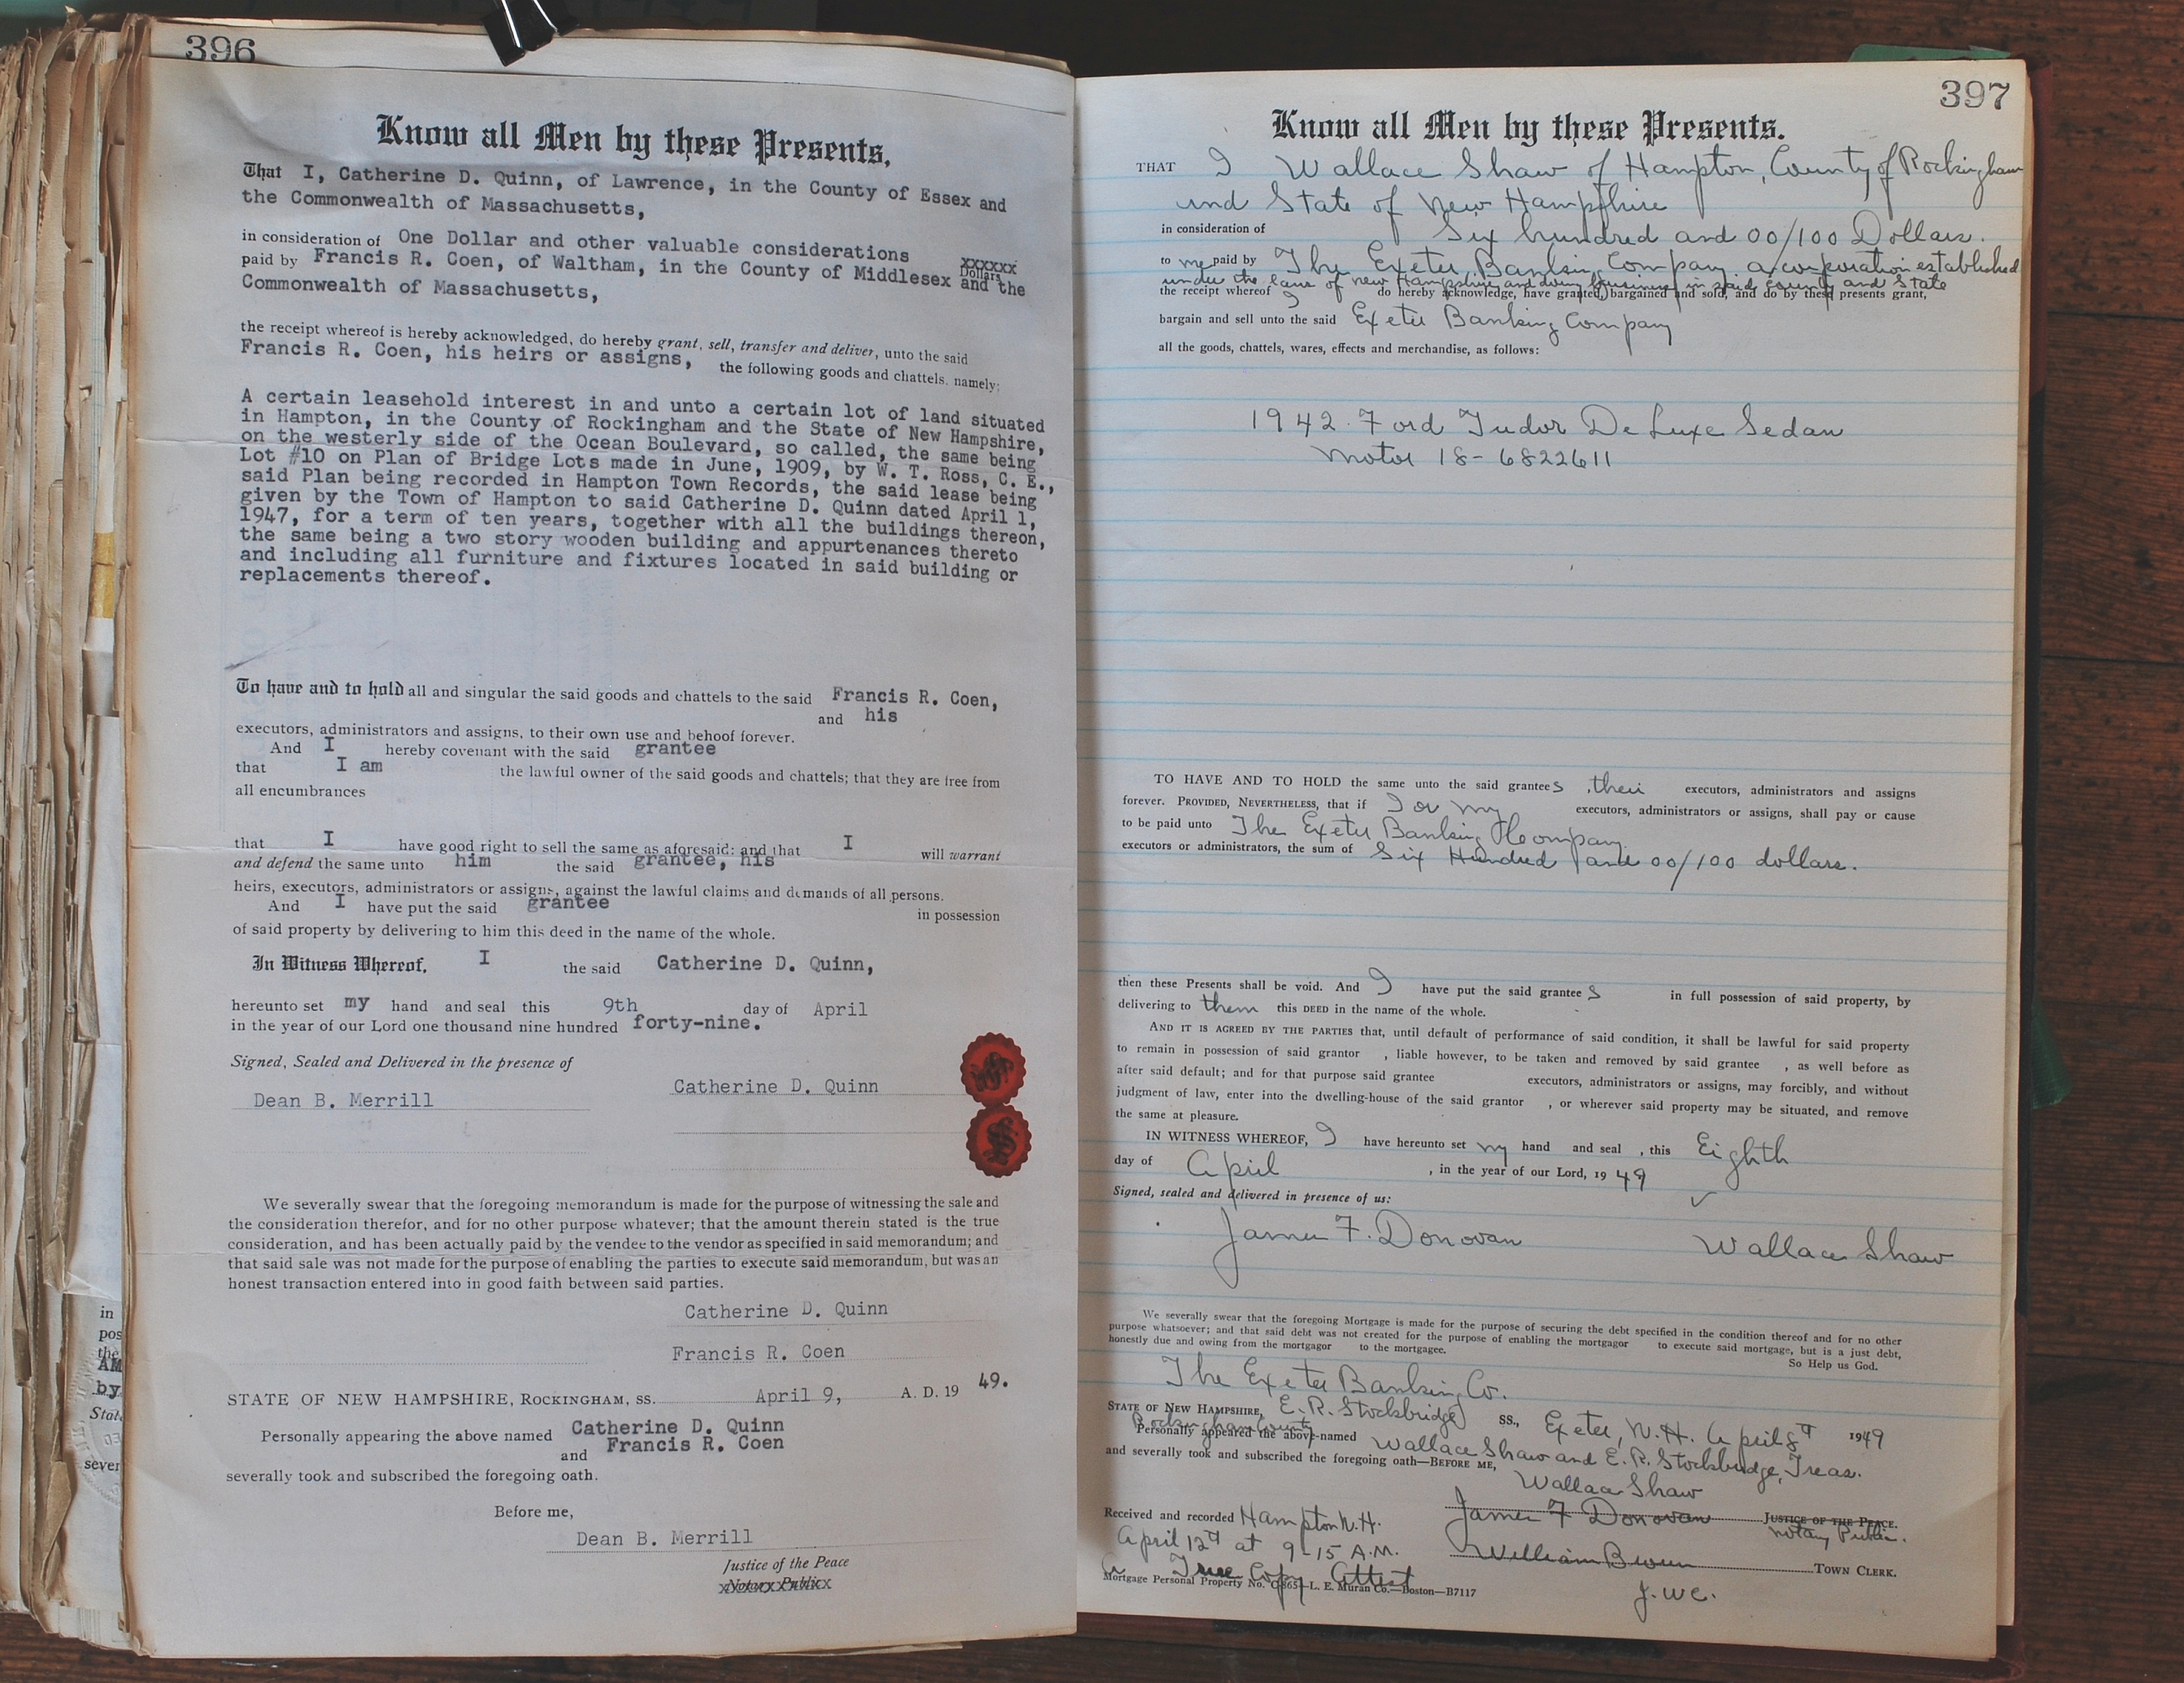 396
Know all Men by these Presents,
That I, Catherine D. Quinn, of Lawrence, in the County of Essex and
the Commonwealth of Massachusetts,
in consideration of One Dollar and other valuable considerations xxxxxx Dollars
paid by Francis R. Coen, of Waltham, in the County of Middlesex and the
Commonwealth of Massachusetts,
the receipt whereof is hereby acknowledged, do hereby grant, sell, transfer and deliver, unto the said
Francis R. Coen, his heirs or assigns, the following goods and chattels, namely:
A certain leasehold interest in and unto a certain lot of land situated
in Hampton, in the County of Rockingham and the State of New Hampshire,
on the westerly side of the Ocean Boulevard, so called, the same being
Lot #10 on Plan of Bridge Lots made in June, 1909, by W. T. Ross, C. E.,
said Plan being recorded in Hampton Town Records, the said lease being
given by the Town of Hampton to said Catherine D. Quinn dated April 1,
1947, for a term of ten years, together with all the buildings thereon,
the same being a two story wooden building and appurtenances thereto
and including all furniture and fixtures located in said building or
replacements thereof.
To have and to hold all and singular the said goods and chattels to the said Francis R. Coen,
and his
executors, administrators and assigns, to their own use and behoof forever.
And I hereby covenant with the said grantee
that I am the lawful owner of the said goods and chattels; that they are free from
all encumbrances
that I have good right to sell the same as aforesaid; and that I will warrant
and defend the same unto him the said grantee, his
heirs, executors, administrators or assigns, against the lawful claims and demands of all persons.
And I have put the said grantee in possession
of said property by delivering to him this deed in the name of the whole.
In Witness Whereof, I the said Catherine D. Quinn,
hereunto set my hand and seal this 9th day of April
in the year of our Lord one thousand nine hundred forty-nine.
Signed, Sealed and Delivered in the presence of
Catherine D. Quinn
Dean B. Merrill
We severally swear that the foregoing memorandum is made for the purpose of witnessing the sale and
the consideration therefor, and for no other purpose whatever; that the amount therein stated is the true
consideration, and has been actually paid by the vendee to the vendor as specified in said memorandum; and
that said sale was not made for the purpose of enabling the parties to execute said memorandum, but was an
honest transaction entered into in good faith between said parties.
Catherine D. Quinn
Francis R. Coen
STATE OF NEW HAMPSHIRE, ROCKINGHAM, SS. April 9, A. D. 19 49.
Personally appearing the above named Catherine D. Quinn
and Francis R. Coen
severally took and subscribed the foregoing oath.
Before me,
Dean B. Merrill
Justice of the Peace
Notary Public
in
pos
the
AM
by
State
sever
397
Know all Men by these Presents.
THAT I Wallace Shaw of Hampton, County of Rockingham
and State of New Hampshire
in consideration of Six hundred and 00/100 Dollars.
to me paid by The Exeter Banking Company, a corporation established
under the laws of New Hampshire and doing business in said County and State
the receipt whereof I do hereby acknowledge, have granted, bargained and sold, and do by these presents grant,
bargain and sell unto the said Exeter Banking Company
all the goods, chattels, wares, effects and merchandise, as follows:
1942 Ford Tudor DeLuxe Sedan
Motor 18-6822611
TO HAVE AND TO HOLD the same unto the said grantees their executors, administrators and assigns
forever. PROVIDED, NEVERTHELESS, that if I or my executors, administrators or assigns, shall pay or cause
to be paid unto The Exeter Banking Company
executors or administrators, the sum of Six Hundred and 00/100 dollars.
then these Presents shall be void. And I have put the said grantees in full possession of said property, by
delivering to them this DEED in the name of the whole.
AND IT IS AGREED BY THE PARTIES that, until default of performance of said condition, it shall be lawful for said property
to remain in possession of said grantor , liable however, to be taken and removed by said grantee , as well before as
after said default; and for that purpose said grantee executors, administrators or assigns, may forcibly, and without
judgment of law, enter into the dwelling-house of the said grantor , or wherever said property may be situated, and remove
the same at pleasure.
IN WITNESS WHEREOF, I have hereunto set my hand and seal , this Eighth
day of April , in the year of our Lord, 1949
Signed, sealed and delivered in presence of us:
James F. Donovan Wallace Shaw
We severally swear that the foregoing Mortgage is made for the purpose of securing the debt specified in the condition thereof and for no other
purpose whatsoever; and that said debt was not created for the purpose of enabling the mortgagor to execute said mortgage, but is a just debt,
honestly due and owing from the mortgagor to the mortgagee.
So Help us God.
The Exeter Banking Co.
STATE OF NEW HAMPSHIRE, E. R. Stockbridge SS., Exeter, N.H. April 8th 1949
Rockingham County
Personally appeared the above-named Wallace Shaw and E. R. Stockbridge, Treas.
and severally took and subscribed the foregoing oath—BEFORE ME,
Wallace Shaw
James F Donovan JUSTICE OF THE PEACE.
Notary Public.
Received and recorded Hampton N.H.
April 12th at 9-15 A.M.
William Brown TOWN CLERK.
A True Copy Attest
J.W.C.
Mortgage Personal Property No. C865—L. E. Muran Co.—Boston—B7117